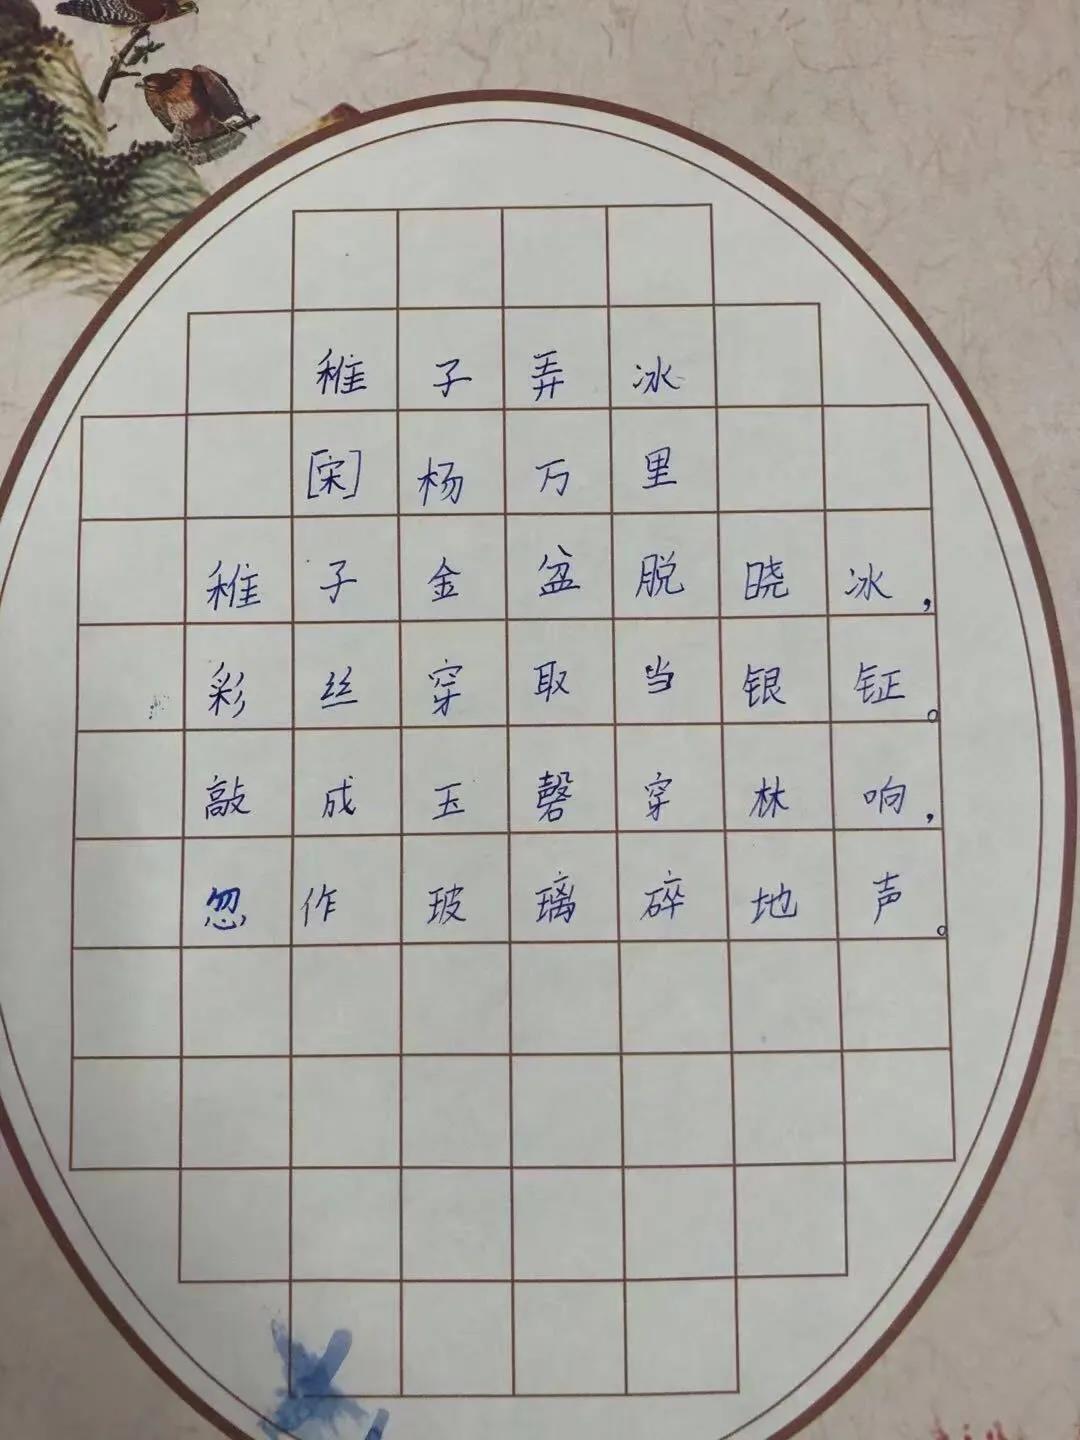 稚子弄冰
[宋]杨万里
稚子金盆脱晓冰，
彩丝穿取当银钲。
敲成玉磬穿林响，
忽作玻璃碎地声。